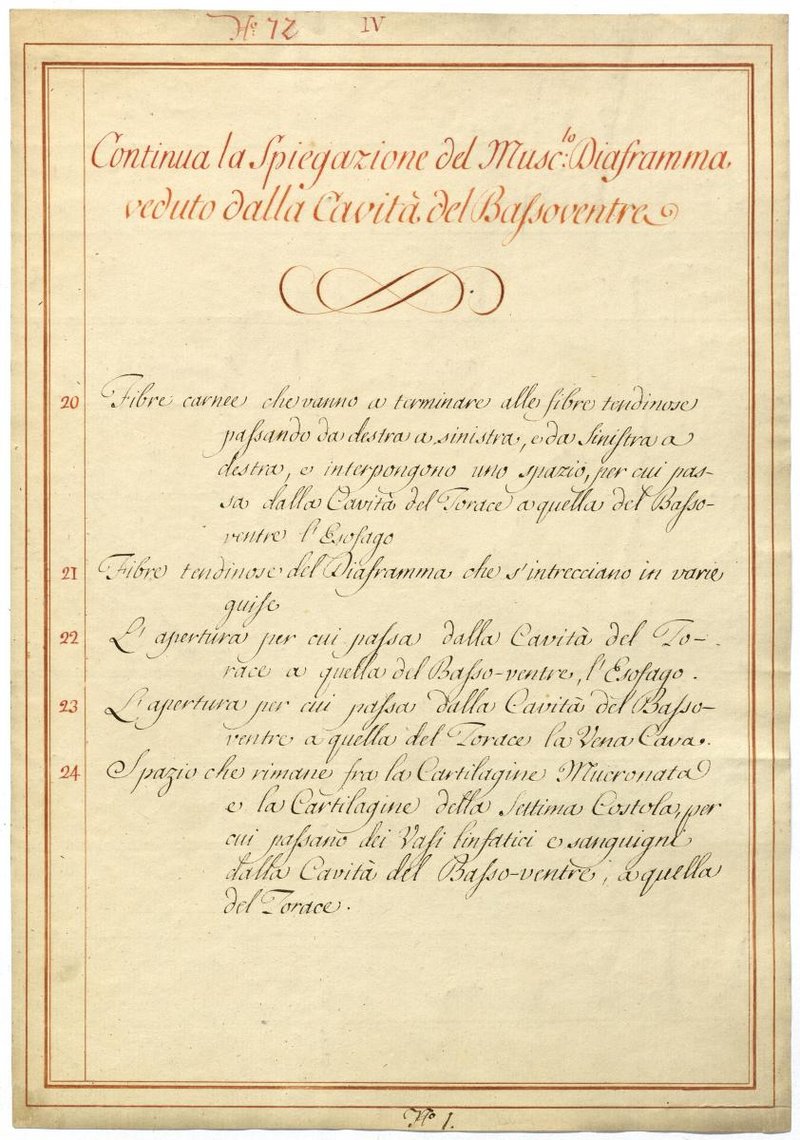 N.º 72 IV
Continua la Spiegazione del Musc:lo Diaframma,
veduto dalla Cavità del Baſsoventre
20 Fibre carnee che vanno a terminare alle fibre tendinose
paſsando da destra a sinistra, e da siniſtra a
destra, e interpongono uno spazio, per cui pas-
sa dalla Cavità del Torace a quella del Baſso-
ventre l'Esofago
21 Fibre tendinose del Diaframma che s'intrecciano in varie
guise
22 L'apertura per cui paſsa dalla Cavità del To-
race a quella del Baſso-ventre, l'Esofago.
23 L'apertura per cui paſsa dalla Cavità del Baſso-
ventre a quella del Torace la Vena Cava.
24 Spazio che rimane fra la Cartilagine Mucronata
e la Cartilagine della Settima Costola, per
cui paſsano dei Vasi linfatici e sanguigni
dalla Cavità del Baſso-ventre, a quella
del Torace.
N.º 1.